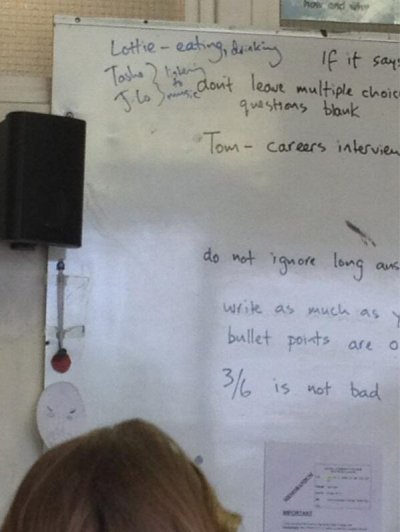 how and why
Lottie - eating, drinking
Tasha } listening
J-Lo } to music
If it says
don't leave multiple choic
questions blank
Tom - careers interview
do not ignore long ans
write as much as y
bullet points are o
3/6 is not bad
MEMORANDUM
IMPORTANT